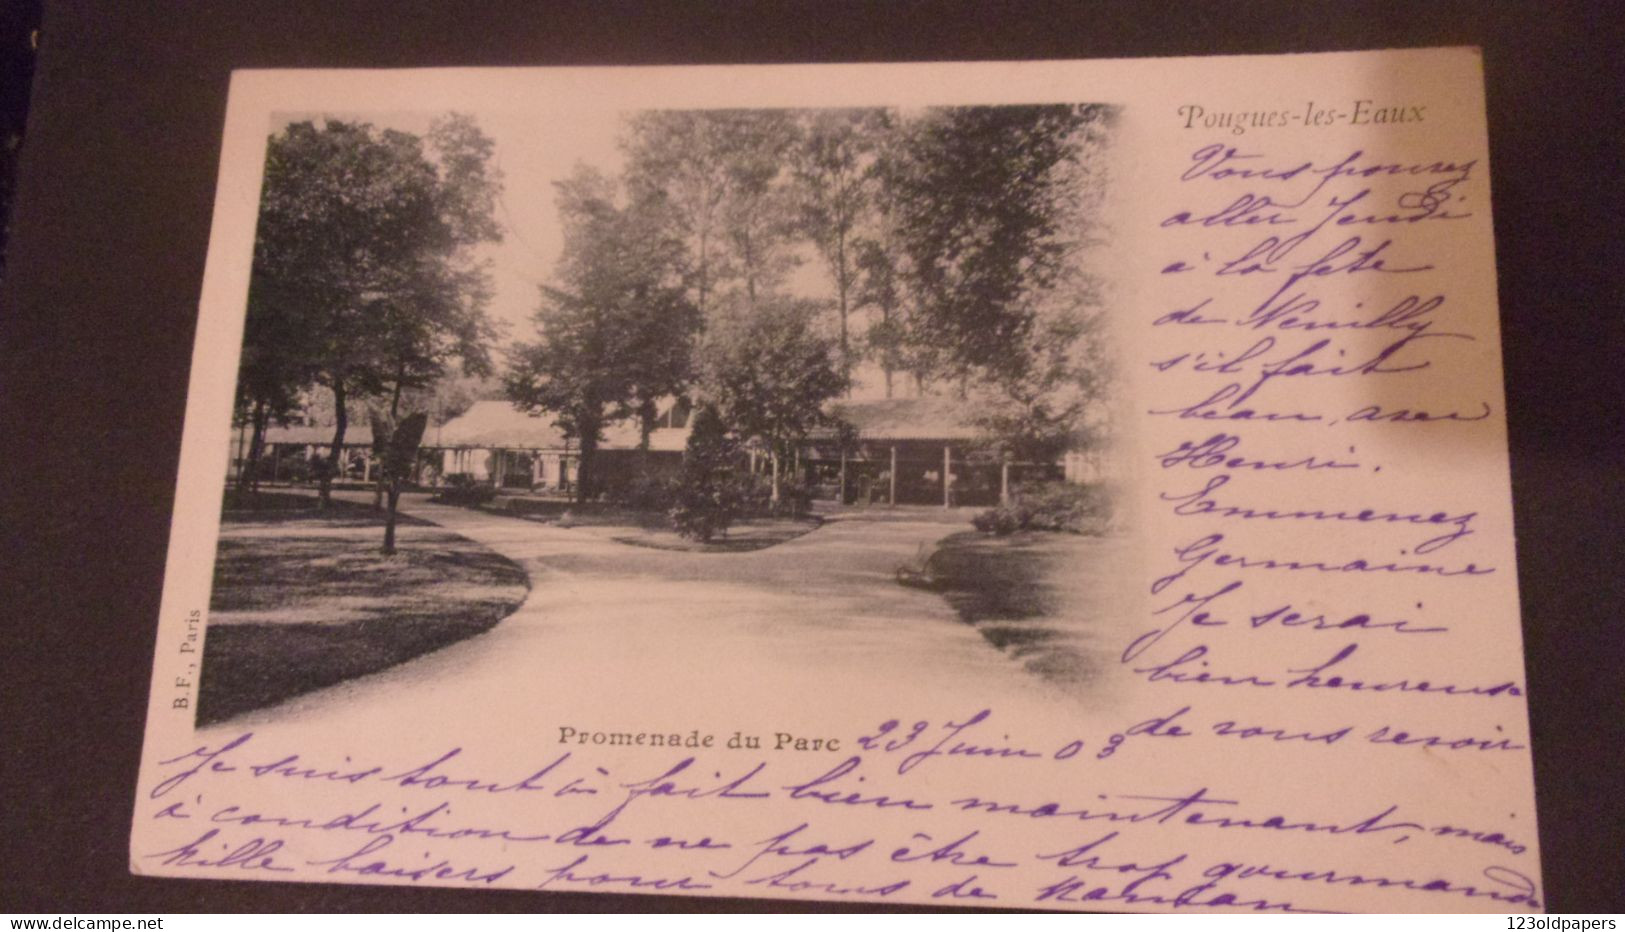 Pougues-les-Eaux
Vous pouvez
aller Jeudi
à la fete
de Neuilly
s'il fait
beau, avec
Henri.
Emmenez
Germaine
Je serai
bien heureuse
de vous revoir
B.F., Paris
Promenade du Parc
23 Juin 03
Je suis tout à fait bien maintenant, mais
à condition de ne pas être trop gourmande
Mille baisers pour tous de Maman
123oldpapers